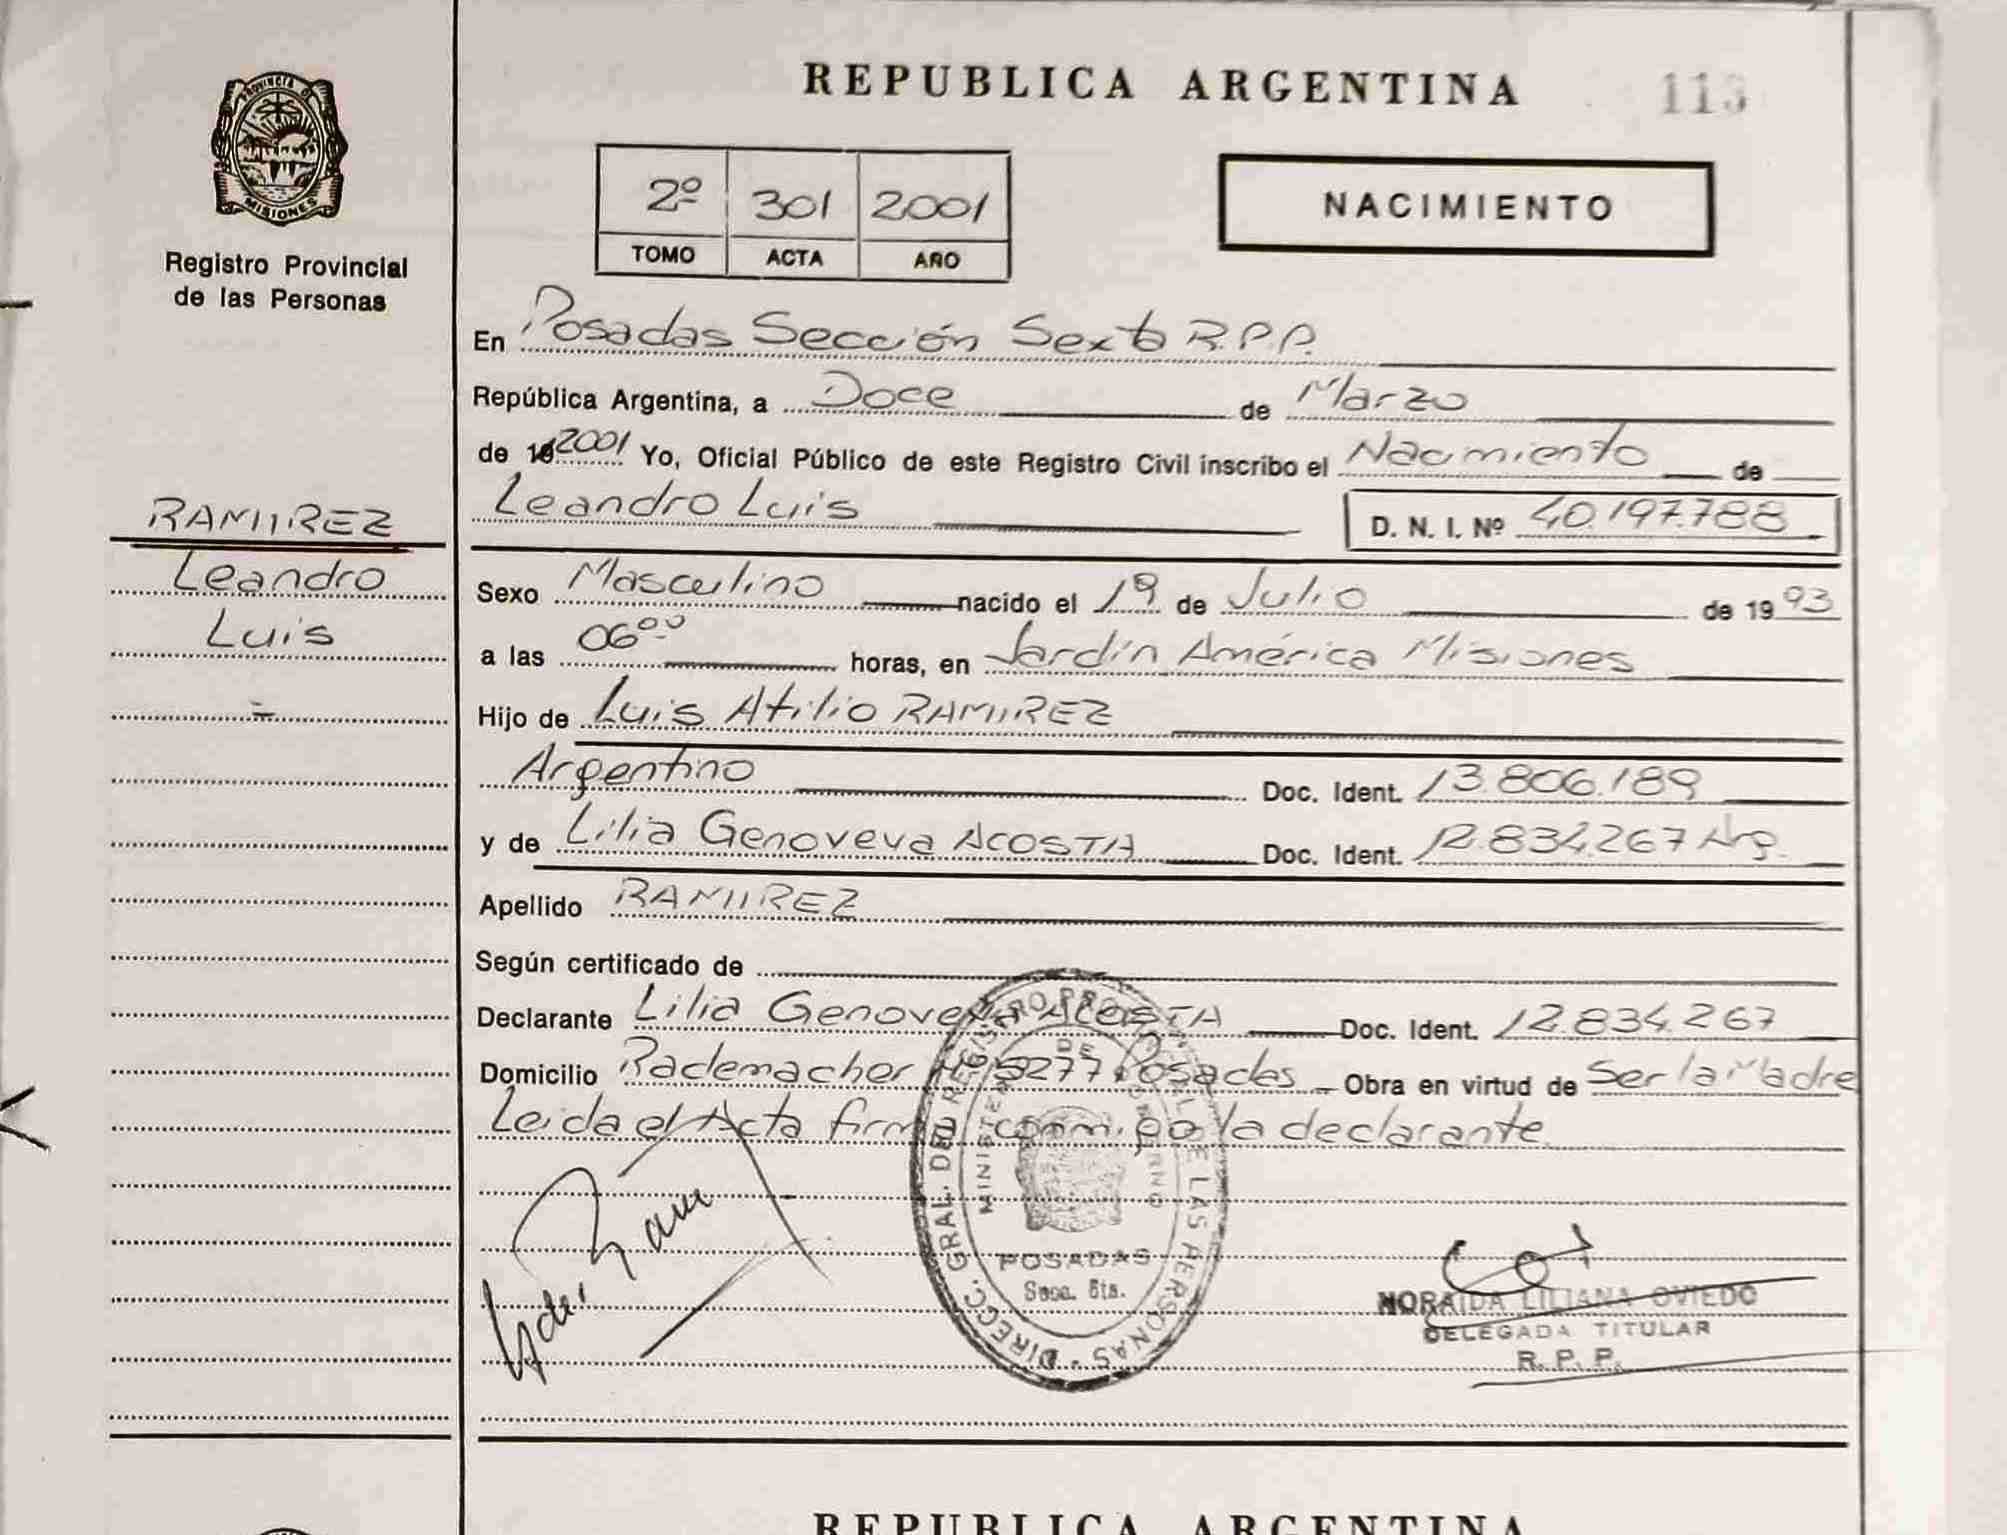 REPUBLICA ARGENTINA
PROVINCIA D
MISIONES
Registro Provincial
de las Personas
2º 301 2001
TOMO ACTA AÑO
NACIMIENTO
En Posadas Sección Sexta R.P.P.
República Argentina, a Doce de Marzo
de 19 2001 Yo, Oficial Público de este Registro Civil inscribo el Nacimiento de
Leandro Luis D. N. I. Nº 40.197.788
RAMIREZ
Leandro
Luis
Sexo Masculino nacido el 19 de Julio de 19 93
a las 06ºº horas, en Jardín América Misiones
Hijo de Luis Atilio RAMIREZ
Argentino Doc. Ident. 13.806.189
y de Lilia Genoveva ACOSTA Doc. Ident. 12.834.267 Arg.
Apellido RAMIREZ
Según certificado de
Declarante Lilia Genoveva ACOSTA Doc. Ident. 12.834.267
Domicilio Rademacher Nº 5277 Posadas Obra en virtud de Ser la Madre
Leida el Acta firma conmigo la declarante
DIRECC. GRAL. DEL REGISTRO PROVINCIAL DE LAS PERSONAS
MINISTERIO DE GOBIERNO
POSADAS
Secc. 6ta.
NORAIDA LILIANA OVIEDO
DELEGADA TITULAR
R. P. P.
REPUBLICA ARGENTINA